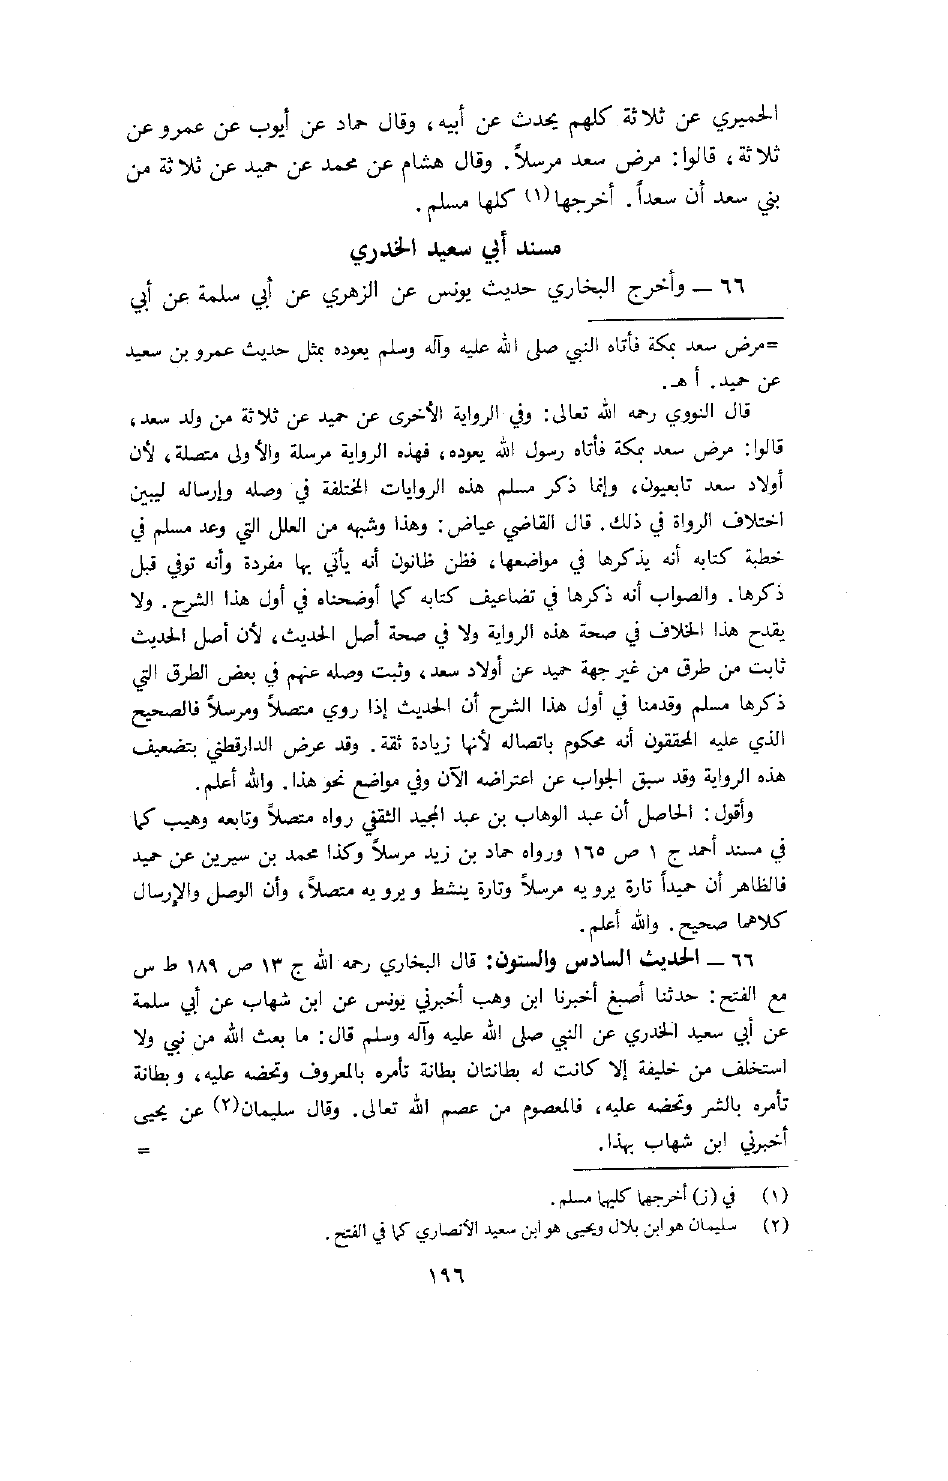 الحميري عن ثلاثة كلهم يحدث عن أبيه، وقال حماد عن أيوب عن عمرو عن
ثلاثة، قالوا: مرض سعد مرسلاً. وقال هشام عن محمد عن حميد عن ثلاثة من
بني سعد أن سعداً. أخرجها(١) كلها مسلم.
مسند أبي سعيد الخدري
٦٦ ــ وأخرج البخاري حديث يونس عن الزهري عن أبي سلمة عن أبي
=مرض سعد بمكة فأتاه النبي صلى الله عليه وآله وسلم يعوده بمثل حديث عمرو بن سعيد
عن حميد. أ هـ.
قال النووي رحمه الله تعالى: وفي الرواية الأخرى عن حميد عن ثلاثة من ولد سعد،
قالوا: مرض سعد بمكة فأتاه رسول الله يعوده، فهذه الرواية مرسلة والأولى متصلة، لأن
أولاد سعد تابعيون، وإنما ذكر مسلم هذه الروايات المختلفة في وصله وإرساله ليبين
اختلاف الرواة في ذلك. قال القاضي عياض: وهذا وشبهه من العلل التي وعد مسلم في
خطبة كتابه أنه يذكرها في مواضعها، فظن ظانون أنه يأتي بها مفردة وأنه توفي قبل
ذكرها. والصواب أنه ذكرها في تضاعيف كتابه كما أوضحناه في أول هذا الشرح. ولا
يقدح هذا الخلاف في صحة هذه الرواية ولا في صحة أصل الحديث، لأن أصل الحديث
ثابت من طرق من غير جهة حميد عن أولاد سعد، وثبت وصله عنهم في بعض الطرق التي
ذكرها مسلم وقدمنا في أول هذا الشرح أن الحديث إذا روي متصلاً ومرسلاً فالصحيح
الذي عليه المحققون أنه محكوم باتصاله لأنها زيادة ثقة. وقد عرض الدارقطني بتضعيف
هذه الرواية وقد سبق الجواب عن اعتراضه الآن وفي مواضع نحو هذا. والله أعلم.
وأقول: الحاصل أن عبد الوهاب بن عبد المجيد الثقفي رواه متصلاً وتابعه وهيب كما
في مسند أحمد ج ١ ص ١٦٥ ورواه حماد بن زيد مرسلاً وكذا محمد بن سيرين عن حميد
فالظاهر أن حميداً تارة يرويه مرسلاً وتارة ينشط ويرويه متصلاً، وأن الوصل والإرسال
كلاهما صحيح. والله أعلم.
٦٦ ــ الحديث السادس والستون: قال البخاري رحمه الله ج ١٣ ص ١٨٩ ط س
مع الفتح: حدثنا أصبغ أخبرنا ابن وهب أخبرني يونس عن ابن شهاب عن أبي سلمة
عن أبي سعيد الخدري عن النبي صلى الله عليه وآله وسلم قال: ما بعث الله من نبي ولا
استخلف من خليفة إلا كانت له بطانتان بطانة تأمره بالمعروف وتحضه عليه، وبطانة
تأمره بالشر وتحضه عليه، فالمعصوم من عصم الله تعالى. وقال سليمان(٢) عن يحيى
أخبرني ابن شهاب بهذا. =
(١) في (ز) أخرجها كليها مسلم.
(٢) سليمان هو ابن بلال ويحيى هو ابن سعيد الأنصاري كما في الفتح.
١٩٦